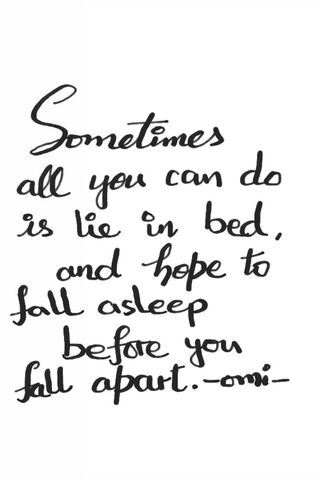 Sometimes
all you can do
is lie in bed,
and hope to
fall asleep
before you
fall apart. -omi-